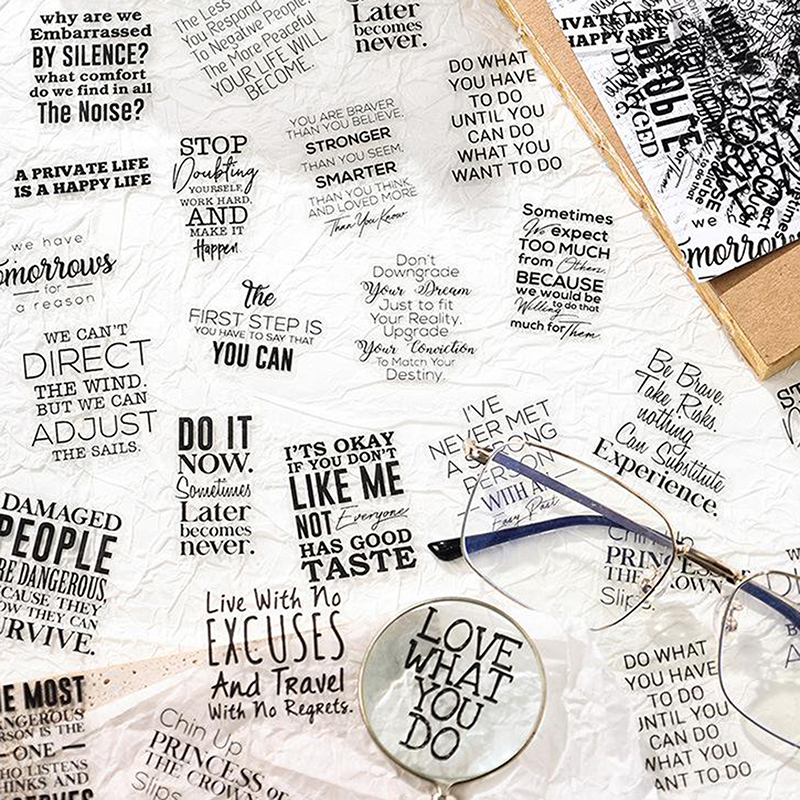 why are we
Embarrassed
BY SILENCE?
what comfort
do we find in all
The Noise?
The Less
You Respond
To Negative People,
The More Peaceful
YOUR LIFE WILL
BECOME.
Later
becomes
never.
DO WHAT
YOU HAVE
TO DO
UNTIL YOU
CAN DO
WHAT YOU
WANT TO DO
PRIVATE LIFE
HAPPY LIFE
A PRIVATE LIFE
IS A HAPPY LIFE
STOP
Doubting
YOURSELF,
WORK HARD,
AND
MAKE IT
Happen.
YOU ARE BRAVER
THAN YOU BELIEVE,
STRONGER
THAN YOU SEEM,
SMARTER
THAN YOU THINK
AND LOVED MORE
Than You Know
Sometimes
We expect
TOO MUCH
from Others
BECAUSE
we would be
Willing to do that
much for Them.
we have
tomorrows
for
a reason
the
FIRST STEP IS
YOU HAVE TO SAY THAT
YOU CAN
Don't
Downgrade
Your Dream
Just to fit
Your Reality.
Upgrade
Your Conviction
To Match Your
Destiny.
WE CAN'T
DIRECT
THE WIND.
BUT WE CAN
ADJUST
THE SAILS.
DO IT
NOW.
Sometimes
Later
becomes
never.
I'TS OKAY
IF YOU DON'T
LIKE ME
NOT Everyone
HAS GOOD
TASTE
I'VE
NEVER MET
A STRONG
PERSON
WITH AN
Easy Past
Be Brave.
Take Risks.
nothing
Can Substitute
Experience.
DAMAGED
PEOPLE
ARE DANGEROUS,
BECAUSE THEY
KNOW THEY CAN
SURVIVE.
Live With No
EXCUSES
And Travel
With No Regrets.
LOVE
WHAT
YOU
DO
Chin Up
PRINCESS
THE CROWN
Slips.
DO WHAT
YOU HAVE
TO DO
UNTIL YOU
CAN DO
WHAT YOU
WANT TO DO
THE MOST
DANGEROUS
PERSON IS THE
ONE
WHO LISTENS
THINKS AND
Chin Up
PRINCESS or
THE CROWN
Slips